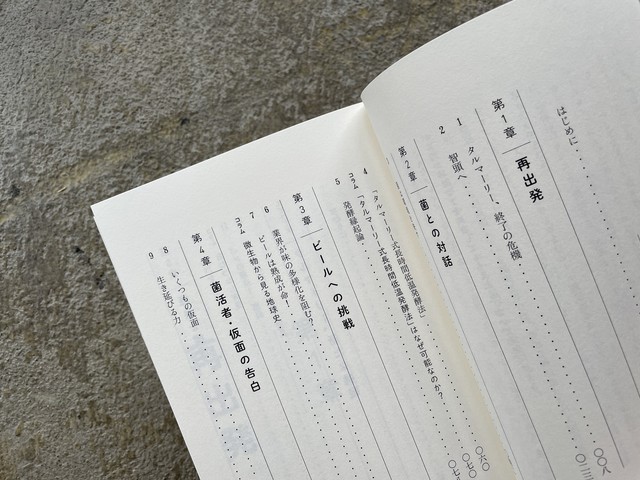 はじめに
〇〇八
第1章 再出発
1 タルマーリー、終了の危機
〇二三
2 智頭へ
第2章 菌との対話
4 「タルマーリー式長時間低温発酵法」
〇六〇
コラム 「タルマーリー式長時間低温発酵法」はなぜ可能なのか?
〇七〇
5 発酵縁起論
〇七
第3章 ビールへの挑戦
業界が味の多様化を阻む?
6 ビールは熟成が命!
7
コラム 微生物から見る地球史
第4章 菌活者・仮面の告白
8 いくつもの仮面
9 生き延びる力